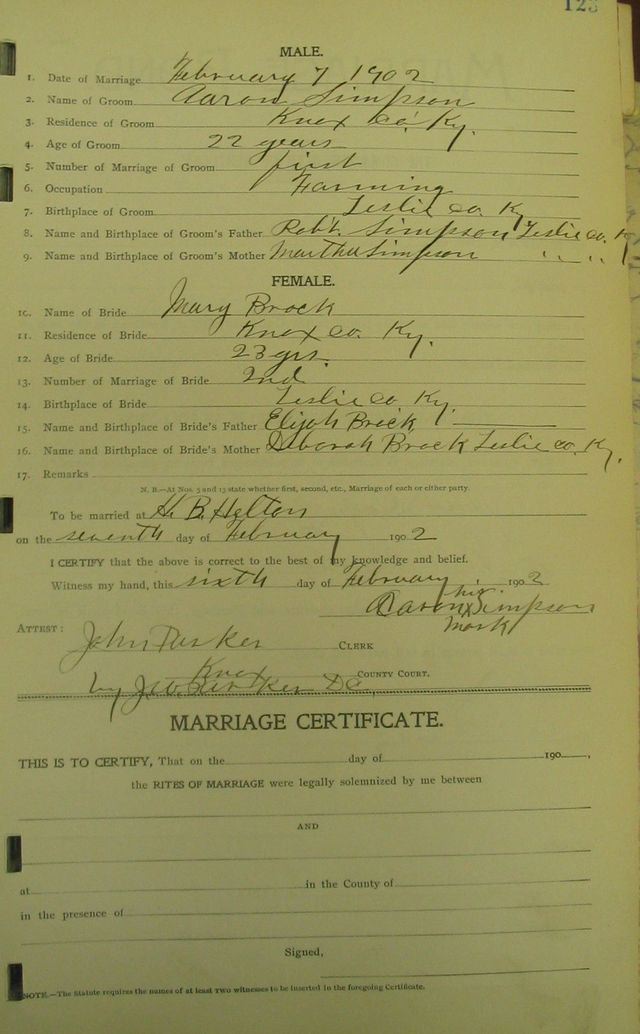 123
MALE.
1. Date of Marriage February 7 1902
2. Name of Groom Aaron Simpson
3. Residence of Groom Knox Co. Ky.
4. Age of Groom 22 years
5. Number of Marriage of Groom first
6. Occupation Farming
7. Birthplace of Groom Leslie co. Ky
8. Name and Birthplace of Groom's Father Robt. Simpson Leslie co. K
9. Name and Birthplace of Groom's Mother Martha Simpson " " "
FEMALE.
10. Name of Bride Mary Brock
11. Residence of Bride Knox co. Ky.
12. Age of Bride 23 yrs.
13. Number of Marriage of Bride 2nd
14. Birthplace of Bride Leslie co Ky.
15. Name and Birthplace of Bride's Father Elijah Brock
16. Name and Birthplace of Bride's Mother Deborah Brock Leslie co. Ky.
17. Remarks
N. B.—At Nos. 5 and 13 state whether first, second, etc., Marriage of each or either party.
To be married at H. B. Helton
on the seventh day of February 1902
I CERTIFY that the above is correct to the best of my knowledge and belief.
Witness my hand, this sixth day of February 1902
his
Aaron x Simpson
mark
ATTEST:
John Parker CLERK
Knox COUNTY COURT.
by J.W. Parker DC
MARRIAGE CERTIFICATE.
THIS IS TO CERTIFY, That on the day of 190 ,
the RITES OF MARRIAGE were legally solemnized by me between
AND
at in the County of
in the presence of
Signed,
NOTE.—The Statute requires the names of at least two witnesses to be inserted in the foregoing Certificate.